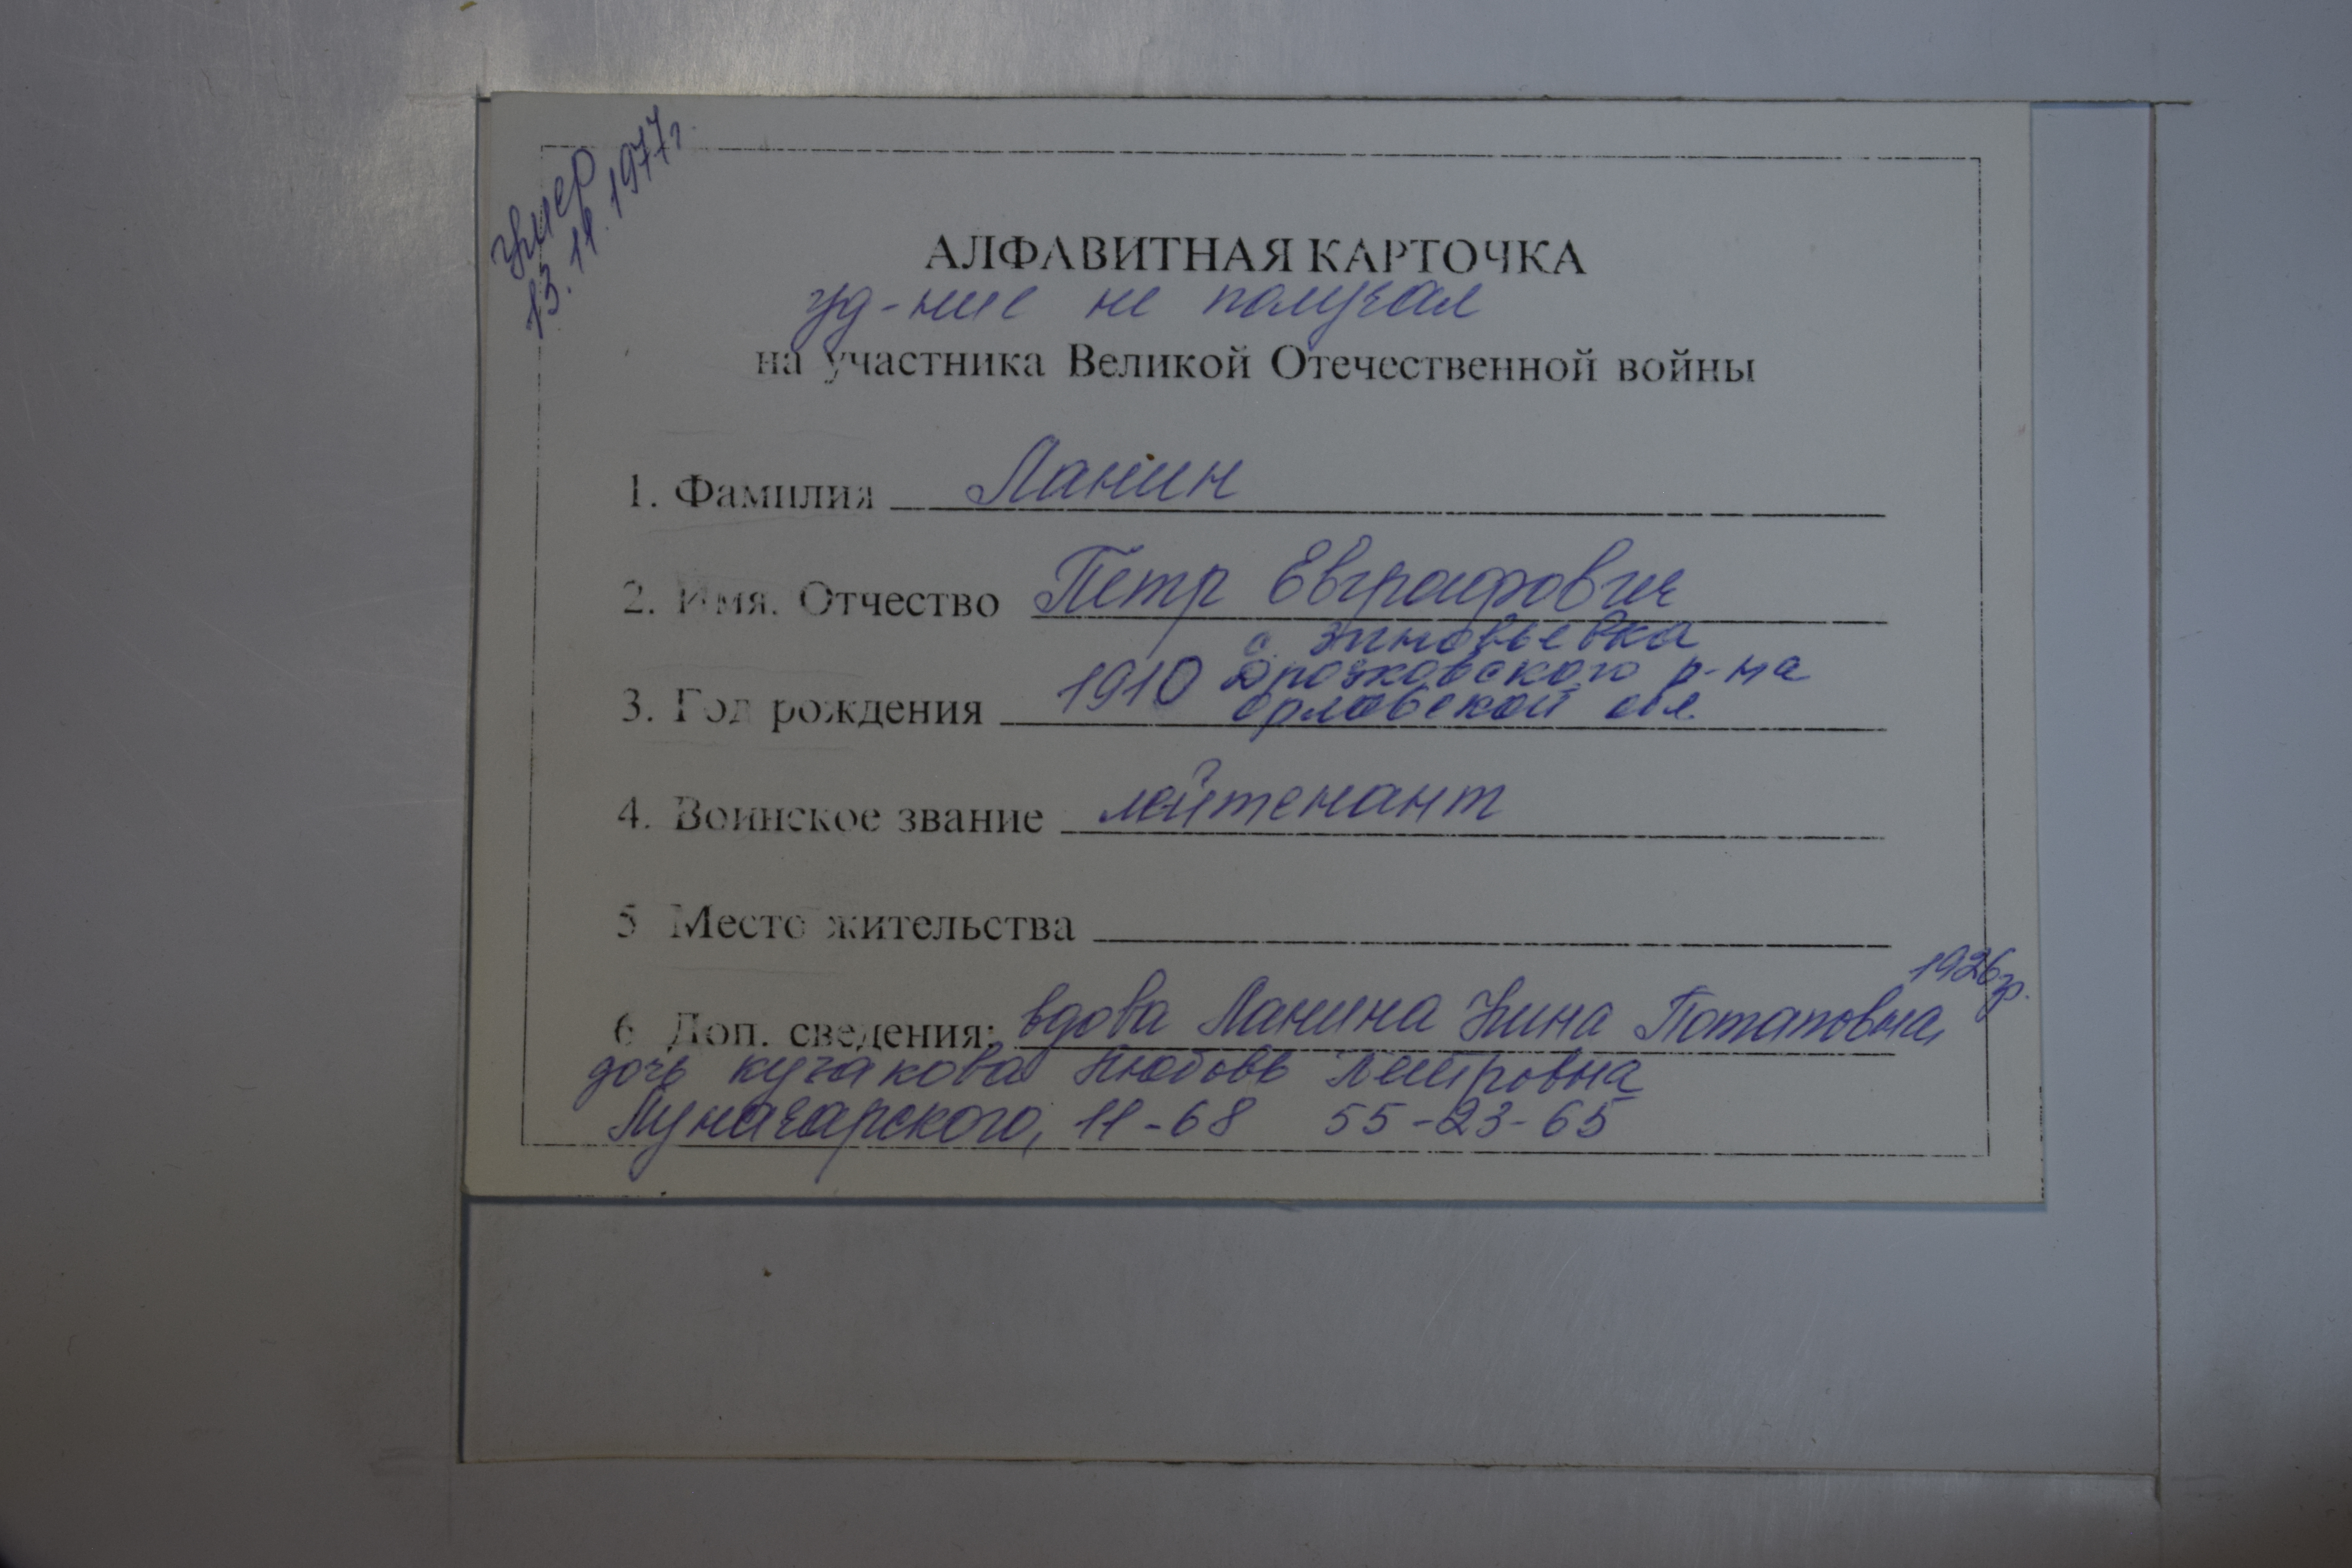 умер
13.11.1977г.
АЛФАВИТНАЯ КАРТОЧКА
уд-ние не получал
на участника Великой Отечественной войны
1. Фамилия Ланин
2. Имя. Отчество Петр Евграфович
с. Зиновьевка
3. Год рождения 1910 Дросковского р-на
Орловской обл.
4. Воинское звание лейтенант
5 Место жительства
1926гр.
6 Доп. сведения: вдова Ланина Нина Потаповна,
дочь Кучакова Любовь Петровна
Луначарского, 11-68 55-23-65